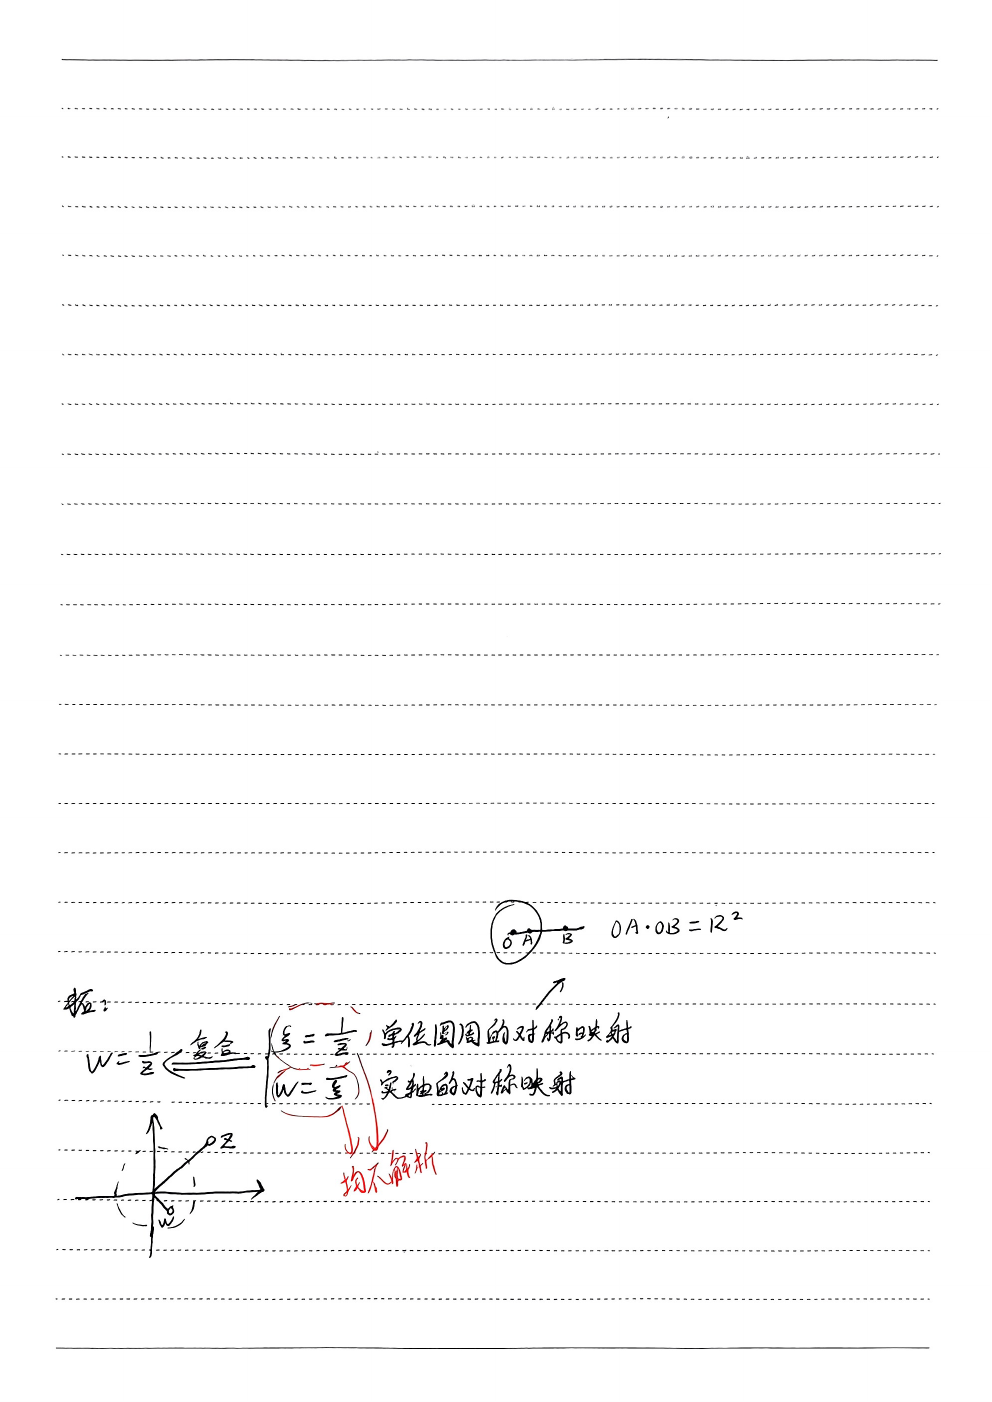 O A B OA·OB=R²
拓:
W=1/z 复合 ξ=1/z̄, 单位圆周的对称映射
W=ξ̄ 实轴的对称映射
z
均不解析
w